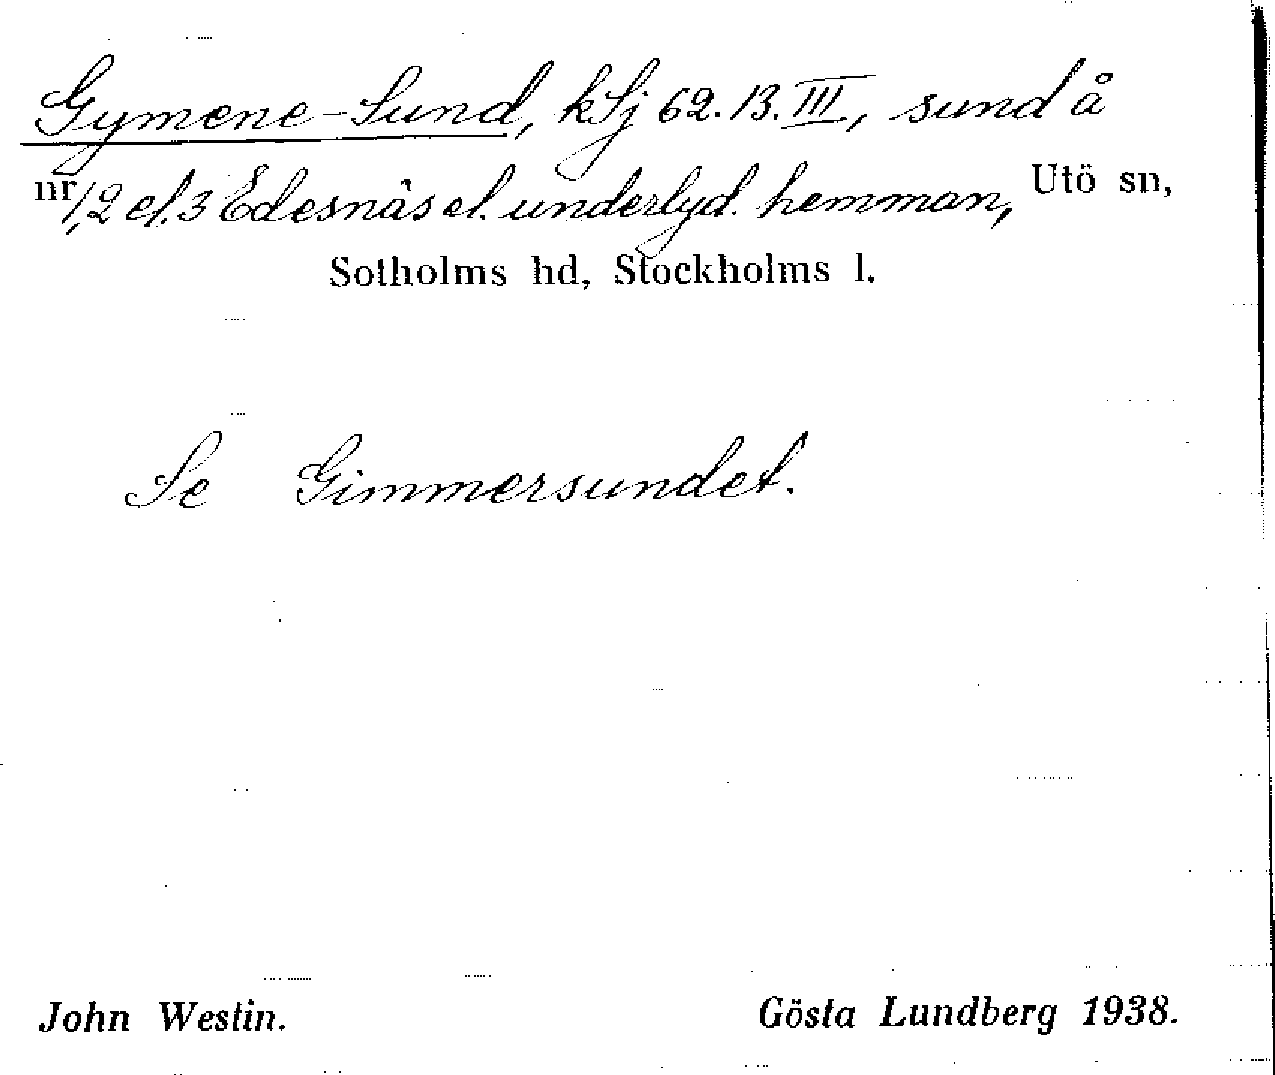 Gymene-Sund, kSj 62.13.III, sund å
nr 1,2 el. 3 Edesnäs el. underlyd. hemman, Utö sn,
Sotholms hd, Stockholms l.
Se Gimmersundet.
John Westin. Gösta Lundberg 1938.